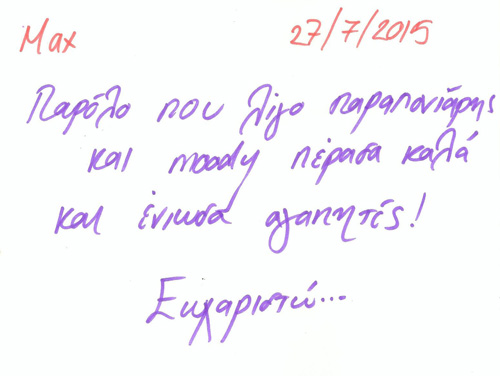 Max 27/7/2015
Παρόλο που λίγο παραπονιάρης
και moody πέρασα καλά
και ένιωσα αγαπητές!
Ευχαριστώ...